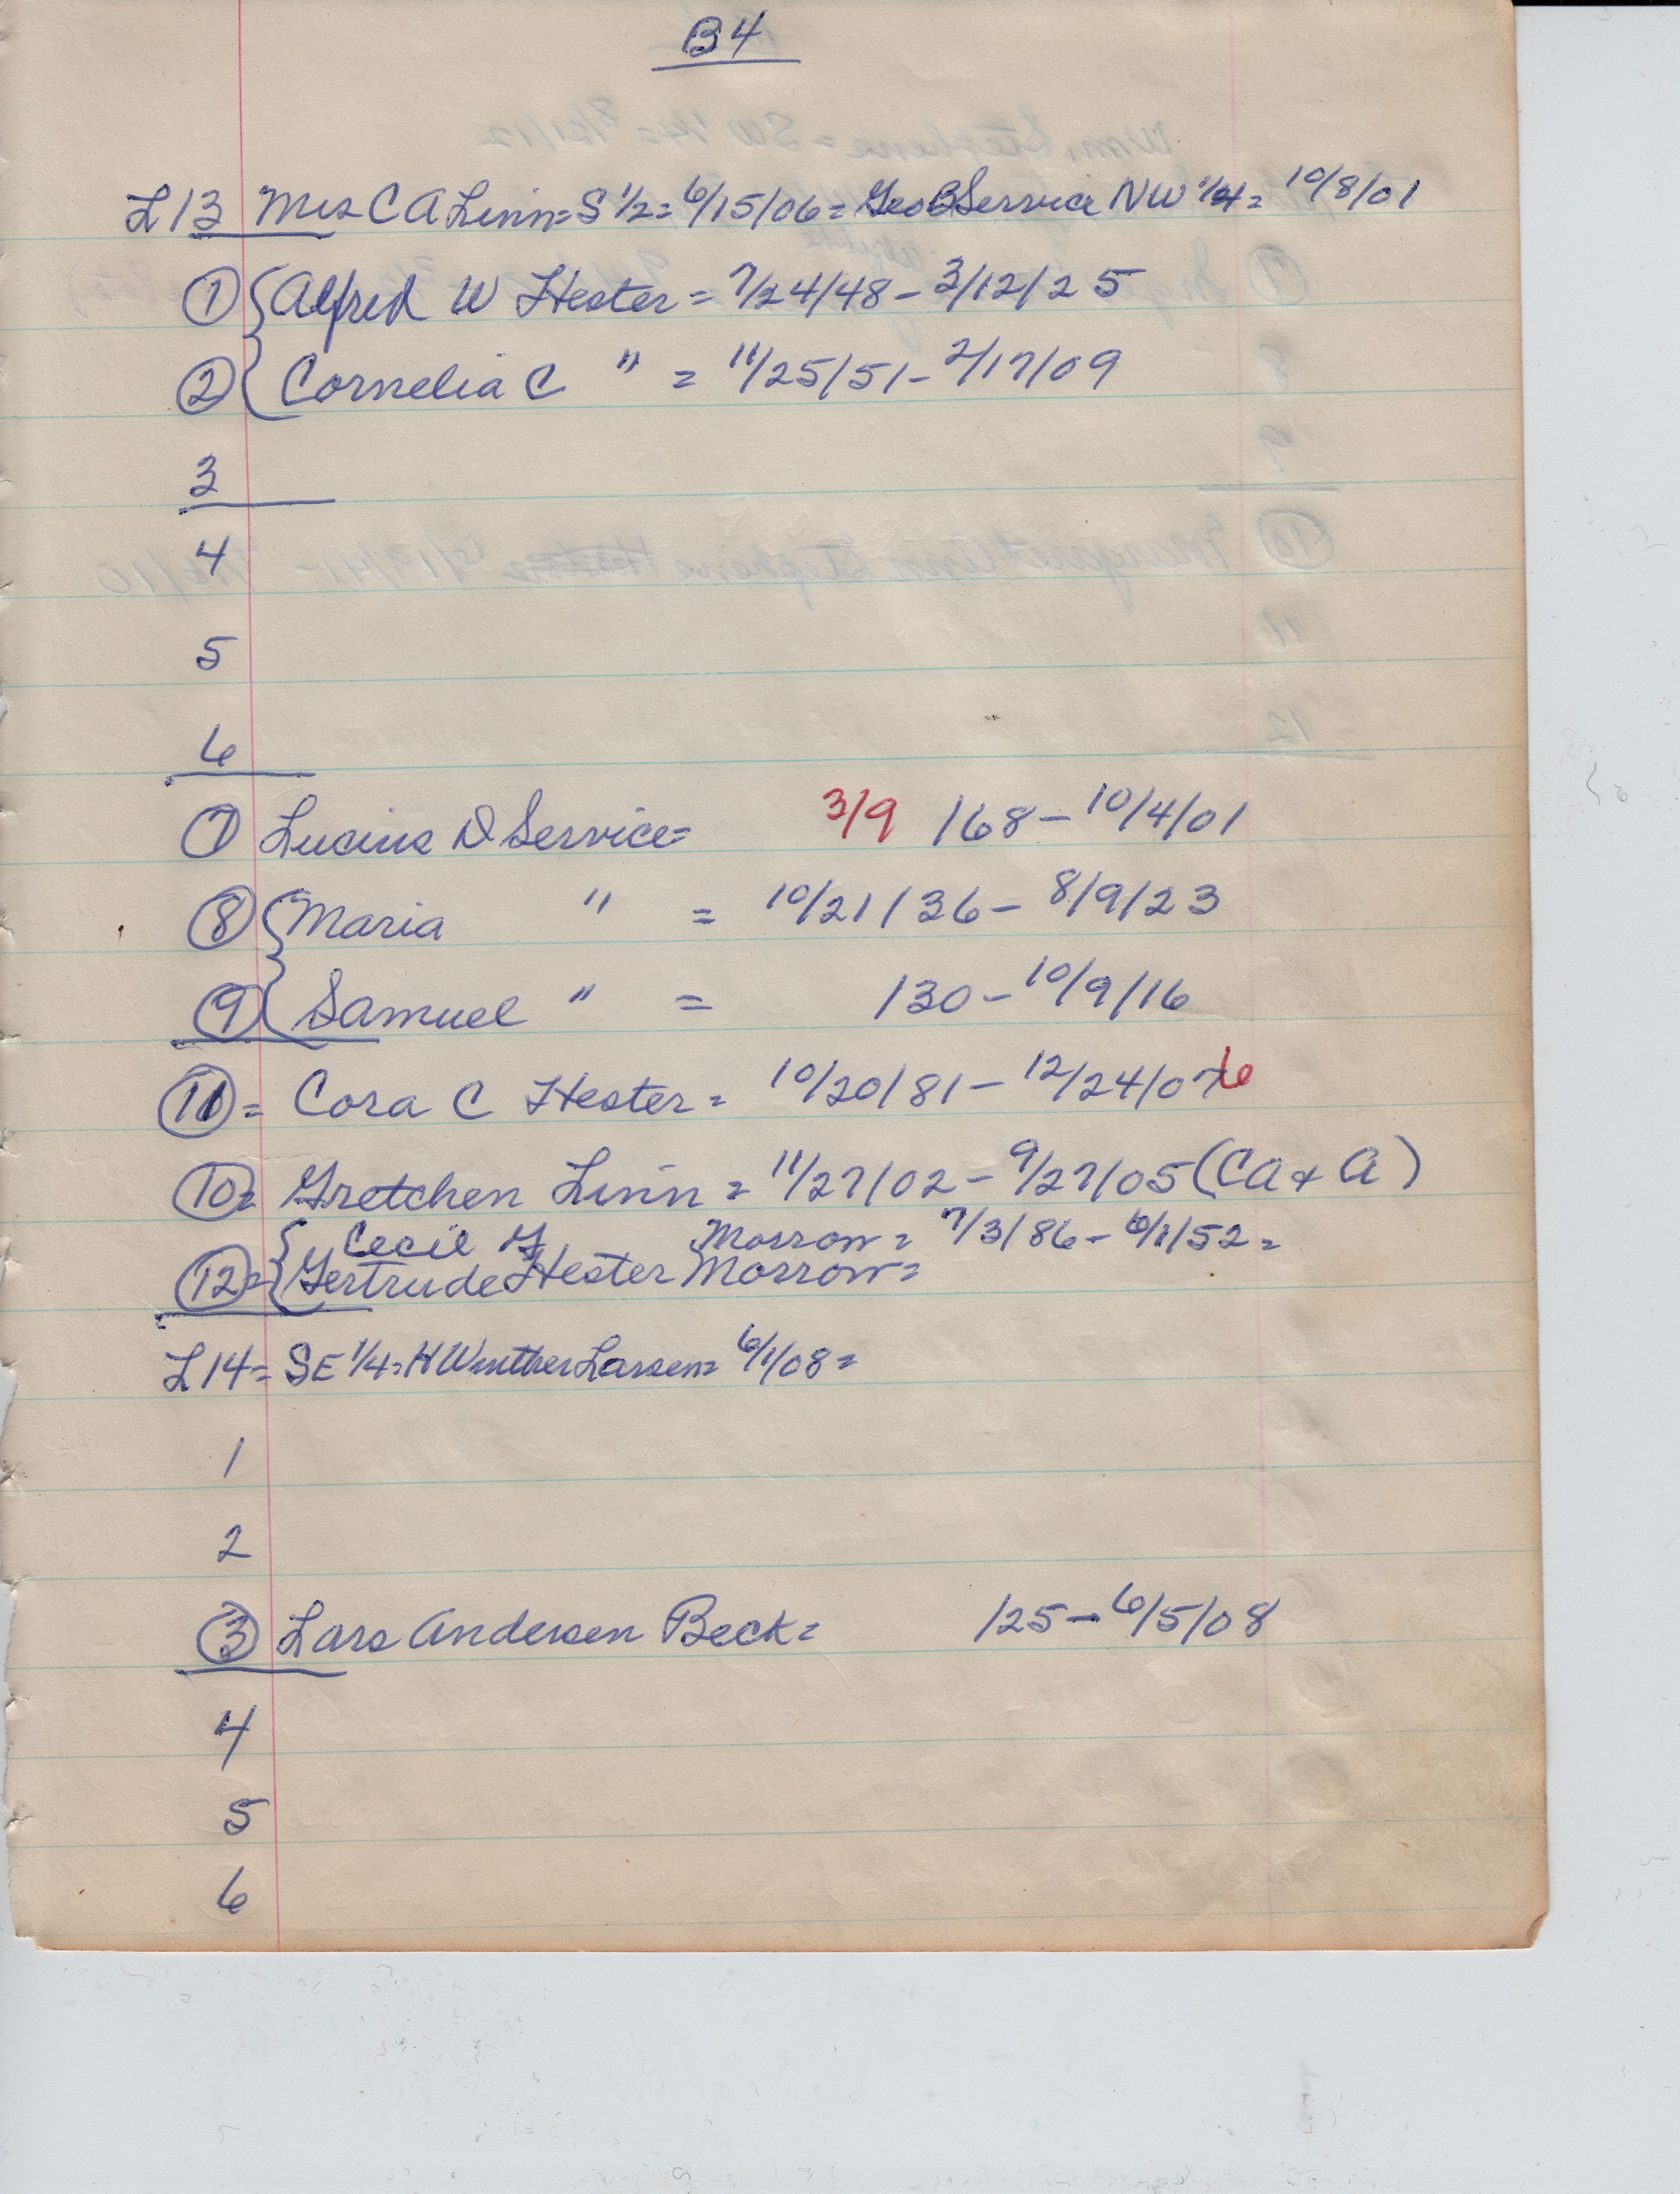 B4
L13 Mrs C A Linn = S 1/2 = 6/15/06 = Geo B Service NW 1/4 = 10/8/01
1 { Alfred W Hester = 7/24/48 - 3/12/25
2 { Cornelia C " = 11/25/51 - 2/17/09
3
4
5
6
7 Lucius D Service = 3/9 /68 - 10/4/01
8 { Maria " = 10/21/36 - 8/9/23
9 { Samuel " = /30 - 10/9/16
11 = Cora C Hester = 10/20/81 - 12/24/076
10 = Gretchen Linn = 11/27/02 - 9/27/05 (CA + A)
{ Cecil G Morrow = 7/3/86 - 6/1/52 =
12 = { Gertrude Hester Morrow =
L14 = SE 1/4 = H Winther Larsen = 6/1/08 =
1
2
3 Lars Andersen Beck = /25 - 6/5/08
4
5
6